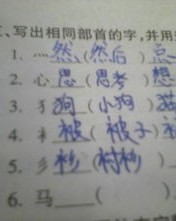 、写出相同部首的字,并用
1. 灬 然(然后)点
2. 心 思(思考)想
3. 犭 狗(小狗)猫
4. 衤 被(被子)
5. 彡
6. 马___( )